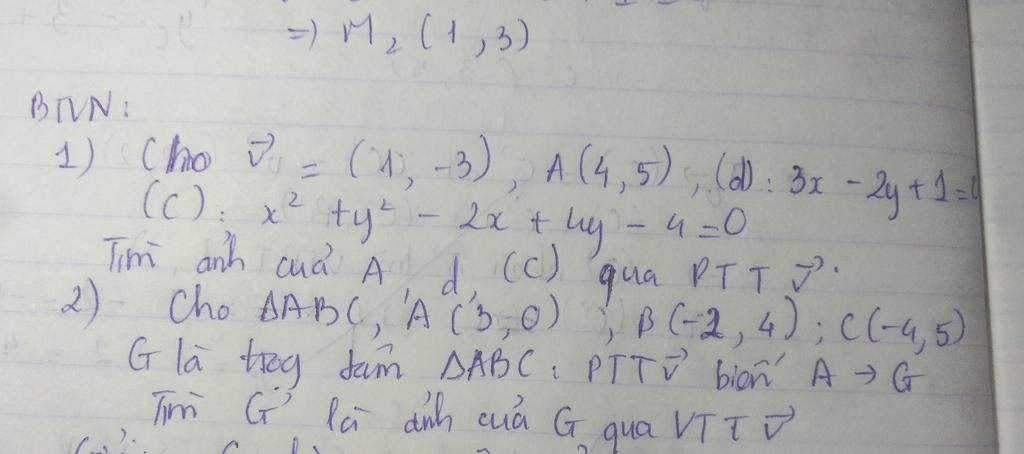 =) M₂ (1, 3)
BTVN:
1) Cho v⃗ = (1, -3), A(4, 5), (d): 3x - 2y + 1 = 0
(C): x² + y² - 2x + 4y - 4 = 0
Tìm ảnh của A, d, (C) qua PTT v⃗.
2) Cho ΔABC, A(3, 0), B(-2, 4); C(-4, 5)
G là trog tâm ΔABC: PTT v⃗ biến A → G
Tìm G' là ảnh của G qua VTT v⃗